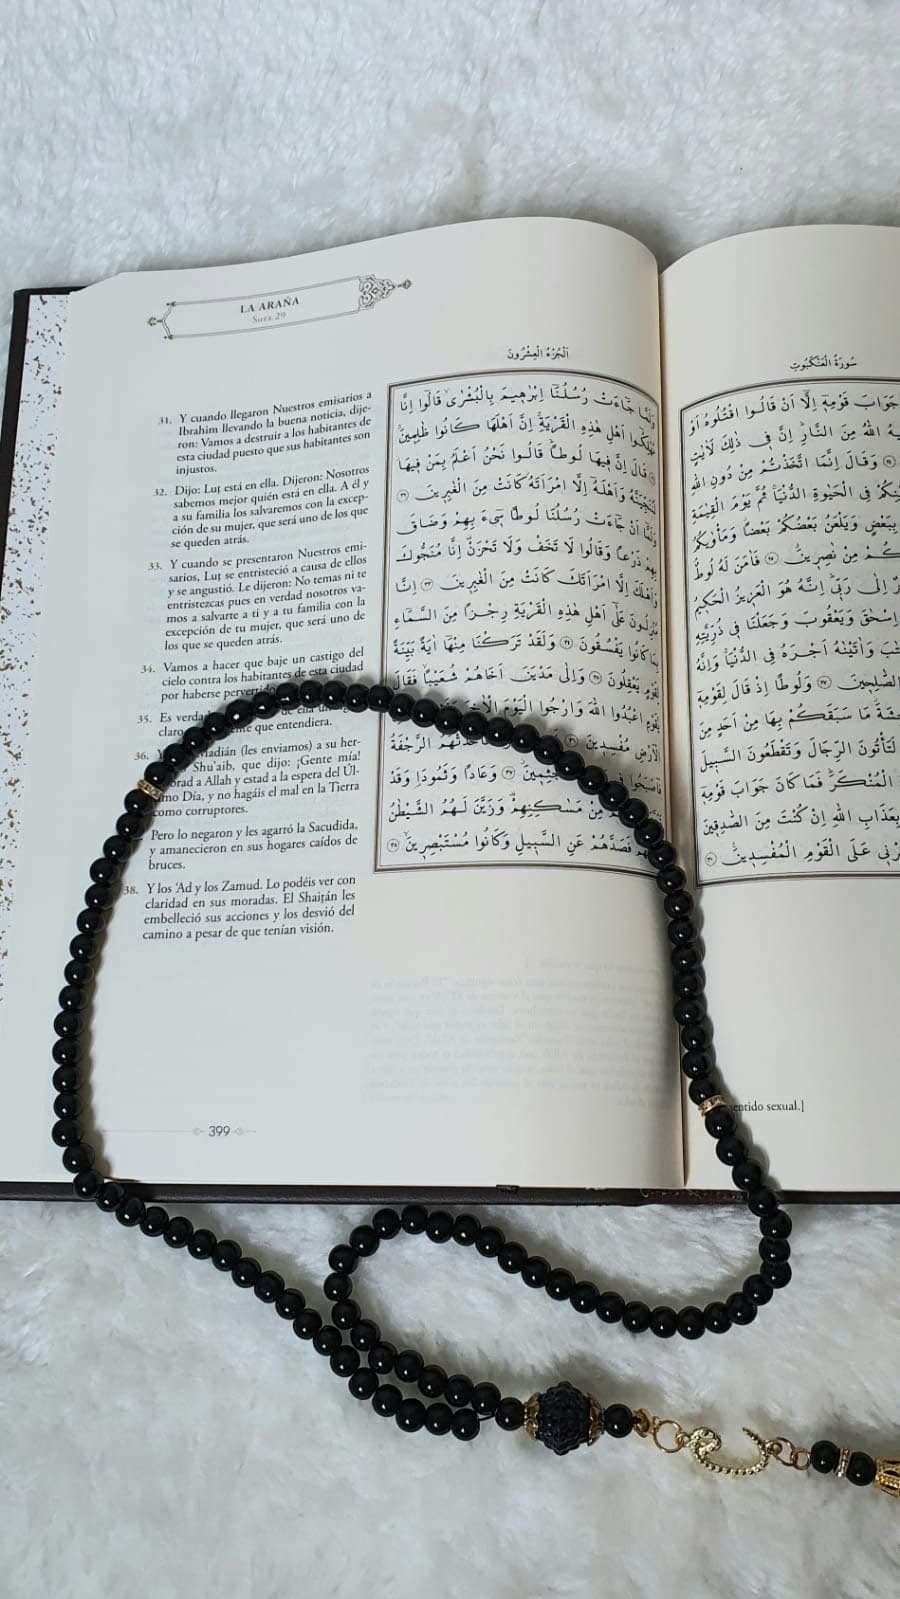 LA ARAÑA
Sura 29
31. Y cuando llegaron Nuestros emisarios a
Ibrahim llevando la buena noticia, dije-
ron: Vamos a destruir a los habitantes de
esta ciudad puesto que sus habitantes son
injustos.
32. Dijo: Luṭ está en ella. Dijeron: Nosotros
sabemos mejor quién está en ella. A él y
a su familia los salvaremos con la excep-
ción de su mujer, que será uno de los que
se queden atrás.
33. Y cuando se presentaron Nuestros emi-
sarios, Luṭ se entristeció a causa de ellos
y se angustió. Le dijeron: No temas ni te
entristezcas pues en verdad nosotros va-
mos a salvarte a ti y a tu familia con la
excepción de tu mujer, que será uno de
los que se queden atrás.
34. Vamos a hacer que baje un castigo del
cielo contra los habitantes de esta ciudad
por haberse
35. Es de ella
que entendiera.
36. (les enviamos) a su her-
Shu'aib, que dijo: ¡Gente mía!
a Allah y estad a la espera del Úl-
Día, y no hagáis el mal en la Tierra
como corruptores.
Pero lo negaron y les agarró la Sacudida,
y amanecieron en sus hogares caídos de
bruces.
38. Y los 'Ad y los Zamud. Lo podéis ver con
claridad en sus moradas. El Shaiṭán les
embelleció sus acciones y los desvió del
camino a pesar de que tenían visión.
399
اَلْجُزْءُ الْعِشْرُونَ
جَٓاءَتْ رُسُلُنَٓا اِبْرٰهِيمَ بِالْبُشْرٰىۙ قَالُٓوا اِنَّا
اَهْلِ هٰذِهِ الْقَرْيَةِۚ اِنَّ اَهْلَهَا كَانُوا ظَالِمِينَۚ
قَالَ اِنَّ فِيهَا لُوطًاۜ قَالُوا نَحْنُ اَعْلَمُ بِمَنْ فِيهَا
وَاَهْلَهُٓ اِلَّا امْرَاَتَهُۘ كَانَتْ مِنَ الْغَابِرِينَ ٣٢
اَنْ جَٓاءَتْ رُسُلُنَا لُوطًا سِٓيءَ بِهِمْ وَضَاقَ
بِهِمْ ذَرْعًا وَقَالُوا لَا تَخَفْ وَلَا تَحْزَنْ۠ اِنَّا مُنَجُّوكَ
وَاَهْلَكَ اِلَّا امْرَاَتَكَ كَانَتْ مِنَ الْغَابِرِينَ ٣٣ اِنَّا
مُنْزِلُونَ عَلٰٓى اَهْلِ هٰذِهِ الْقَرْيَةِ رِجْزًا مِنَ السَّمَٓاءِ
بِمَا كَانُوا يَفْسُقُونَ ٣٤ وَلَقَدْ تَرَكْنَا مِنْهَٓا اٰيَةً بَيِّنَةً
لِقَوْمٍ يَعْقِلُونَ ٣٥ وَاِلٰى مَدْيَنَ اَخَاهُمْ شُعَيْبًاۙ فَقَالَ
اعْبُدُوا اللّٰهَ وَارْجُوا الْيَوْمَ
الْاَرْضِ مُفْسِدِينَ ٣٦ الرَّجْفَةُ
فَاَصْبَحُوا جَاثِمِينَۘ ٣٧ وَعَادًا وَثَمُودَا۬ وَقَدْ
مِنْ مَسَاكِنِهِمْ۠ وَزَيَّنَ لَهُمُ الشَّيْطَانُ
فَصَدَّهُمْ عَنِ السَّبِيلِ وَكَانُوا مُسْتَبْصِرِينَۙ ٣٨
سُورَةُ الْعَنْكَبُوتِ
جَوَابَ قَوْمِهِٓ اِلَّٓا اَنْ قَالُوا اقْتُلُوهُ اَوْ
اللّٰهُ مِنَ النَّارِۜ اِنَّ فِي ذٰلِكَ لَاٰيَاتٍ
وَقَالَ اِنَّمَا اتَّخَذْتُمْ مِنْ دُونِ اللّٰهِ
فِي الْحَيٰوةِ الدُّنْيَاۚ ثُمَّ يَوْمَ الْقِيٰمَةِ
بِبَعْضٍ وَيَلْعَنُ بَعْضُكُمْ بَعْضًاۘ وَمَأْوٰيكُمُ
مِنْ نَاصِرِينَۗ ٢٥ فَاٰمَنَ لَهُ لُوطٌۘ
اِلٰى رَبِّيۜ اِنَّهُ هُوَ الْعَزِيزُ الْحَكِيمُ
اِسْحٰقَ وَيَعْقُوبَ وَجَعَلْنَا فِي ذُرِّيَّتِهِ
وَاٰتَيْنَاهُ اَجْرَهُ فِي الدُّنْيَاۚ وَاِنَّهُ
الصَّالِحِينَ ٢٧ وَلُوطًا اِذْ قَالَ لِقَوْمِهِٓ
مَا سَبَقَكُمْ بِهَا مِنْ اَحَدٍ مِنَ
لَتَأْتُونَ الرِّجَالَ وَتَقْطَعُونَ السَّبِيلَ
الْمُنْكَرَۜ فَمَا كَانَ جَوَابَ قَوْمِهِٓ
بِعَذَابِ اللّٰهِ اِنْ كُنْتَ مِنَ الصَّادِقِينَ
عَلَى الْقَوْمِ الْمُفْسِدِينَ۟ ٣٠
sentido sexual.]